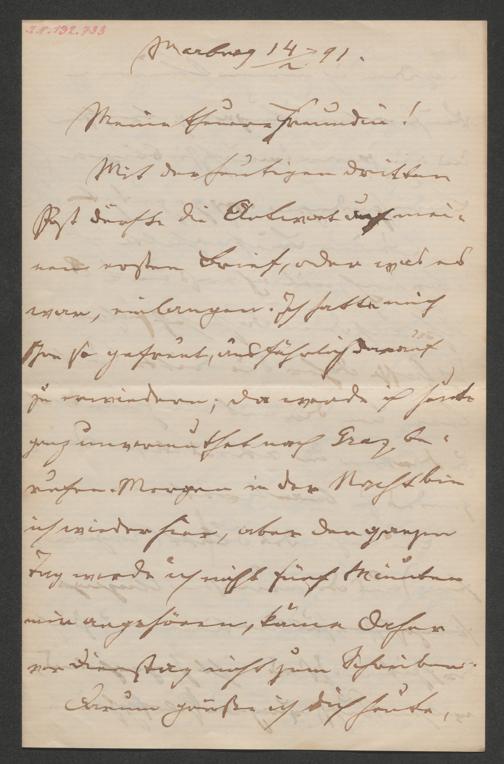 I.N. 192.733
Marburg 14/2 91.
Meine theuere Freundin!
Mit der heutigen dritten
Post dürfte die Antwort auf mei-
nen ersten Brief, oder was es
war, einlangen. Ich hatte mich
schon so gefreut, ausführlich darauf
zu erwiedern; da werde ich heute
ganz unvermuthet nach Graz be-
rufen. Morgen in der Nacht bin
ich wieder hier, aber den ganzen
Tag werde ich nicht fünf Minuten
mir angehören, käme daher
vor Dienstag nicht zum Schreiben.
Darum grüße ich Dich heute,